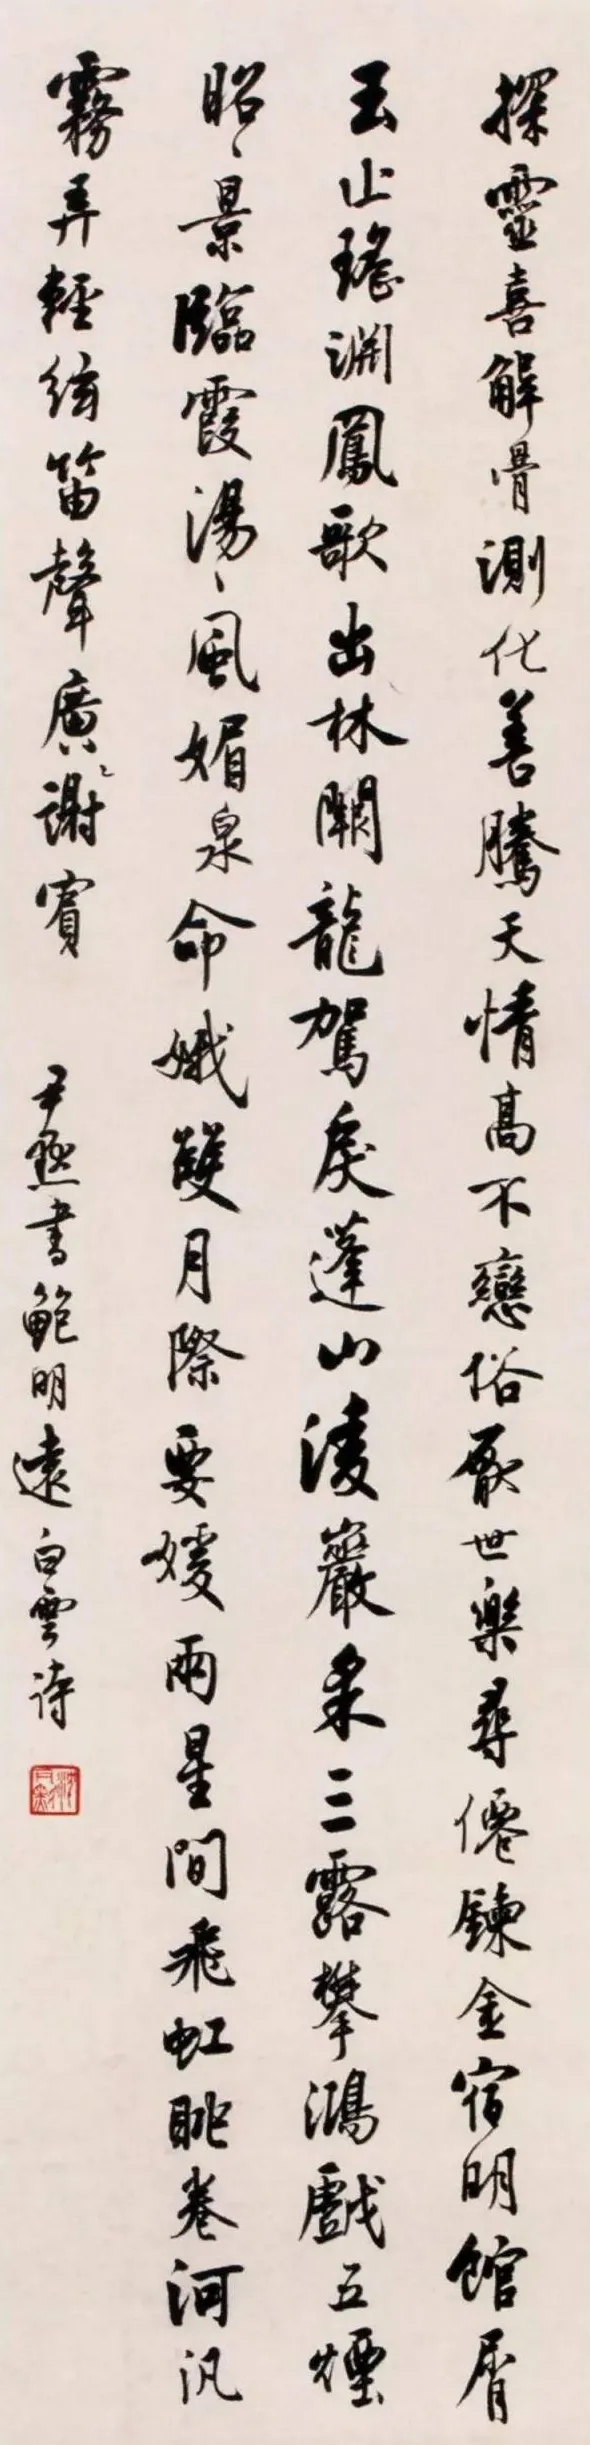 探靈喜解骨測化善騰天情高不戀俗厭世樂尋僊鍊金宿明館屑
玉止瑤淵鳳歌出林闕龍駕戾蓬山淩巖采三露攀鴻戲五煙
昭〻景臨霞湯〻風媚泉命娥雙月際要媛兩星間飛虹眺卷河汎
霧弄輕弦笛聲廣謝賓
尹默書鮑明遠白雲詩